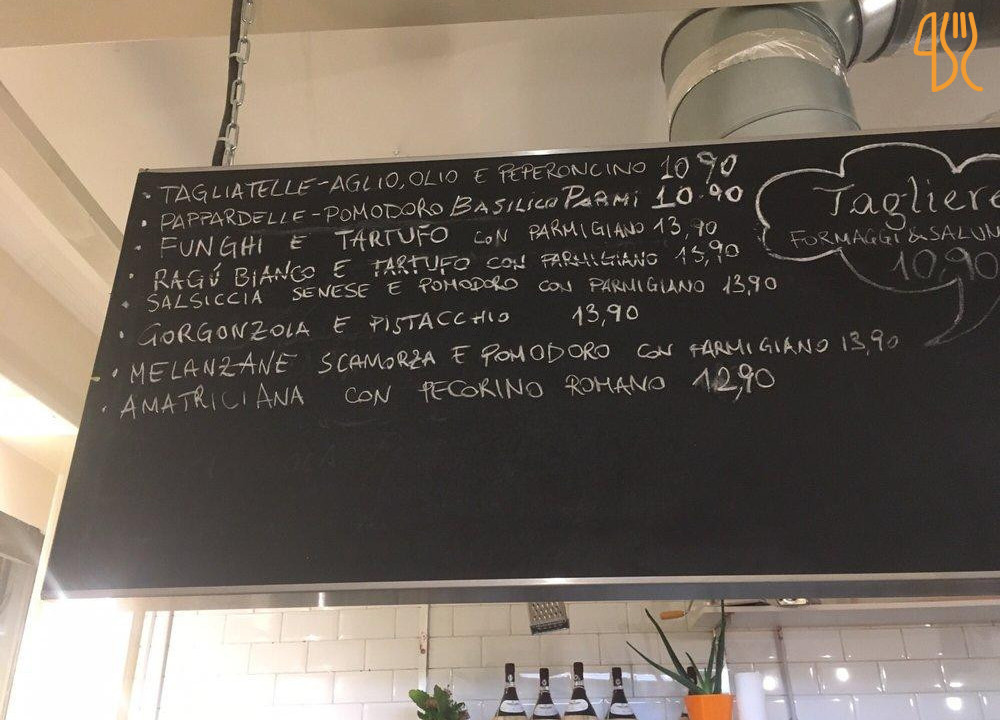 • TAGLIATELLE-AGLIO, OLIO E PEPERONCINO 10 90
• PAPPARDELLE-POMODORO BASILICO PARMI 10.90
• FUNGHI E TARTUFO CON PARMIGIANO 13,90
• RAGÚ BIANCO E TARTUFO CON PARMIGIANO 15,90
• SALSICCIA SENESE E POMODORO CON PARMIGIANO 13,90
• GORGONZOLA E PISTACCHIO 13,90
• MELANZANE SCAMORZA E POMODORO CON PARMIGIANO 13,90
• AMATRICIANA CON PECORINO ROMANO 12,90
Tagliere
FORMAGGI & SALUM
10,90